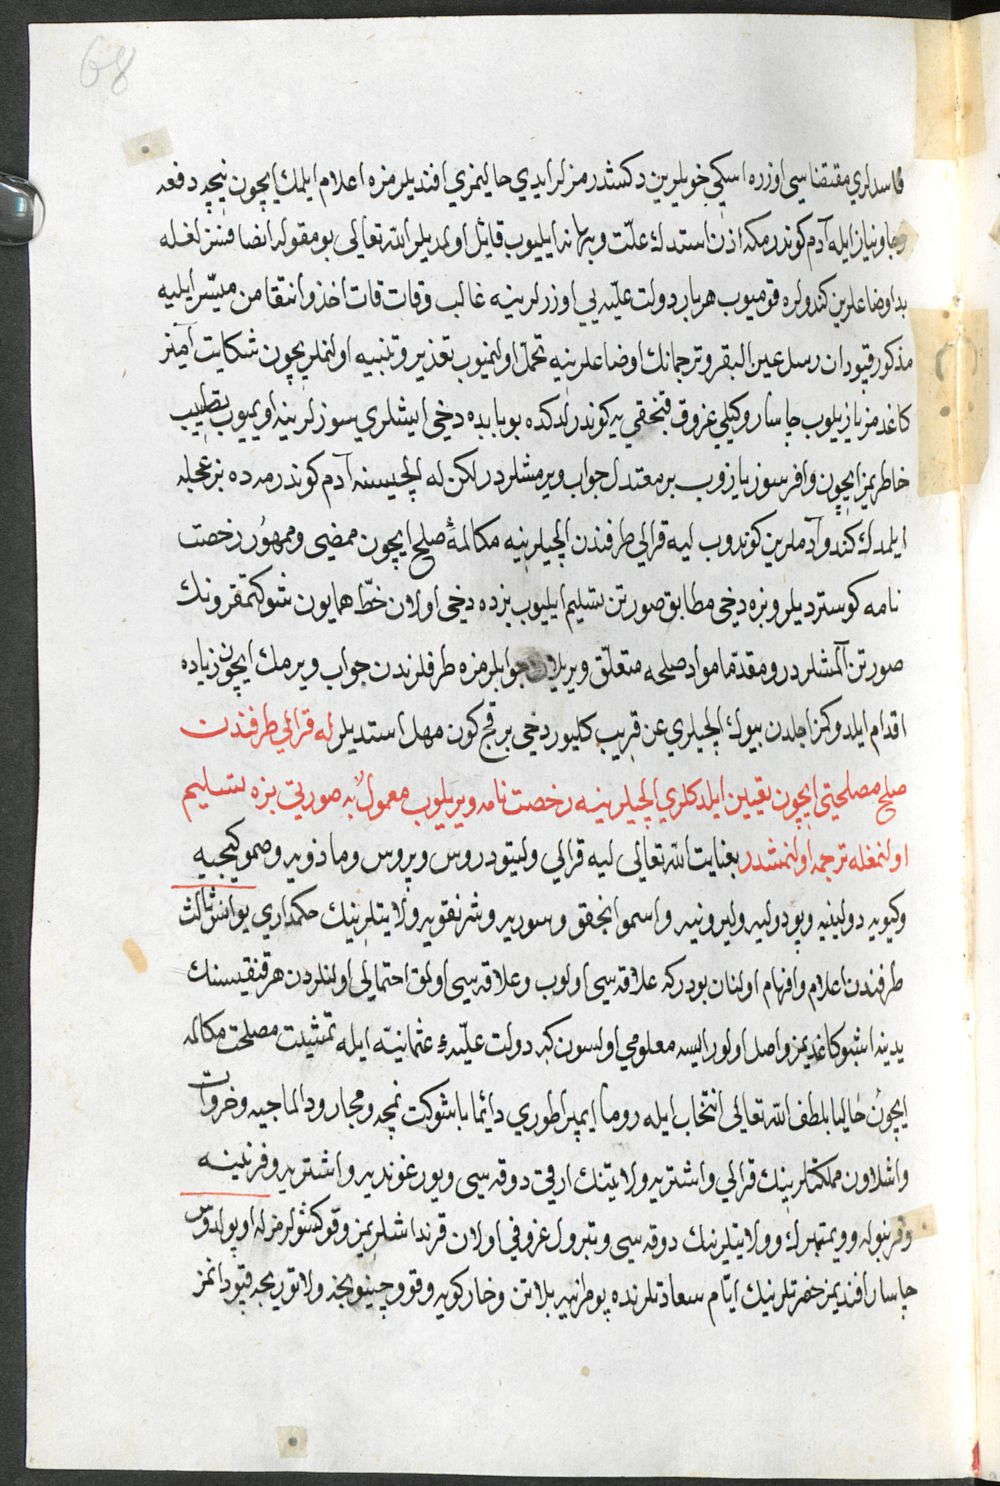 68
فاسدلري مقتضاسي اوزره اسكي خويلرين دكشدرمزلر ايدي حاليمزي افنديلرمزه اعلام ايلمك ايچون نيچه دفعه
رجا ونياز ايله آدم كوندرمكه اذن استدك علت وبهانه ايليوب قائل اولمديلر الله تعالى بو مقوله انصافسزلغله
بد اوضاعلرين كندولره قوميوب هر بار دولت عليه يي اوزرلرينه غالب وقات قات اخذ وانتقامن ميسر ايليه
مذكور قپودان رسل عين البقر وترجمانك اوضاعلرينه تحمل اولنميوب تعذير وتنبيه اولنملريچون شكايت آميز
كاغدمز يازيلوب چاسار وكيلي غروف قبنحقي يه كوندرلدكده بو بابده دخي ايشلري سوزلرينه اويميوب تطييب
خاطريمز ايچون وافر سوز يازوب بر معتدل جواب ويرمشلردر لكن له ايلچيسنه آدم كوندرمه ده بز عجله
ايلمدك كندو آدملرين كوندروب ليه قرالي طرفندن ايلچيلرينه مكالمهٔ صلح ايچون ممضى وممهور رخصت
نامه كوسترديلر وبزه دخي مطابق صورتن تسليم ايليوب بزده دخي اولان خط همايون شوكتمقرونك
صورتن آلمشلردر ومقدما مواد صلحه متعلق ويريلان جوابلرمزه طرفلرندن جواب ويرمك ايچون زياده
اقدام ايلدوكمز اجلدن بيوك ايلچيلري عن قريب كليور دخي بر قچ كون مهل استديلر له قرالي طرفندن
صلح مصلحتي ايچون تعيين ايلدكلري ايلچيلرينه رخصت نامه ويريلوب معمول به صورتي بزه تسليم
اولنمغله ترجمه اولنمشدر بعنايت الله تعالى ليه قرالي وليتو دروس وپروس وماذويه وصموكيجيه
وكيويه دولينيه وپودوليه وليرونيه واسمولنجقو وسوريه وشرنقويه ولايتلرينك حكمداري يوانش ثالث
طرفندن اعلام وافهام اولنان بودركه علاقه سي اولوب وعلاقه سي اولمق احتمالى اولنلردن هر قنقيسنك
يدينه اشبو كاغديمز واصل اولور ايسه معلومي اولسون كه دولت عليهٔ عثمانيه ايله تمشيت مصلحت مكالمه
ايچون حاليا بلطف الله تعالى انتخاب ايله روما ايمپراطوري دائما باشوكت نمچه ومجار ودالماجيه وخروات
واشلاون مملكتلرينك قرالي واشتريه ولايتنك ارقي دوقه سي وبورغونديه واشتريه وقرنتيه
وقرنيوله وويمتبرك وولايتلرينك دوقه سي وتيرول غروفي اولان قرنداشلريمز وقوكشولرمزله اوپولدوس
چاسار افنديمز حضرتلرينك ايام سعادتلرنده پومرانيه پلاتن وخاركويه وقووچينويجه ولاتوريجه قپودانمز